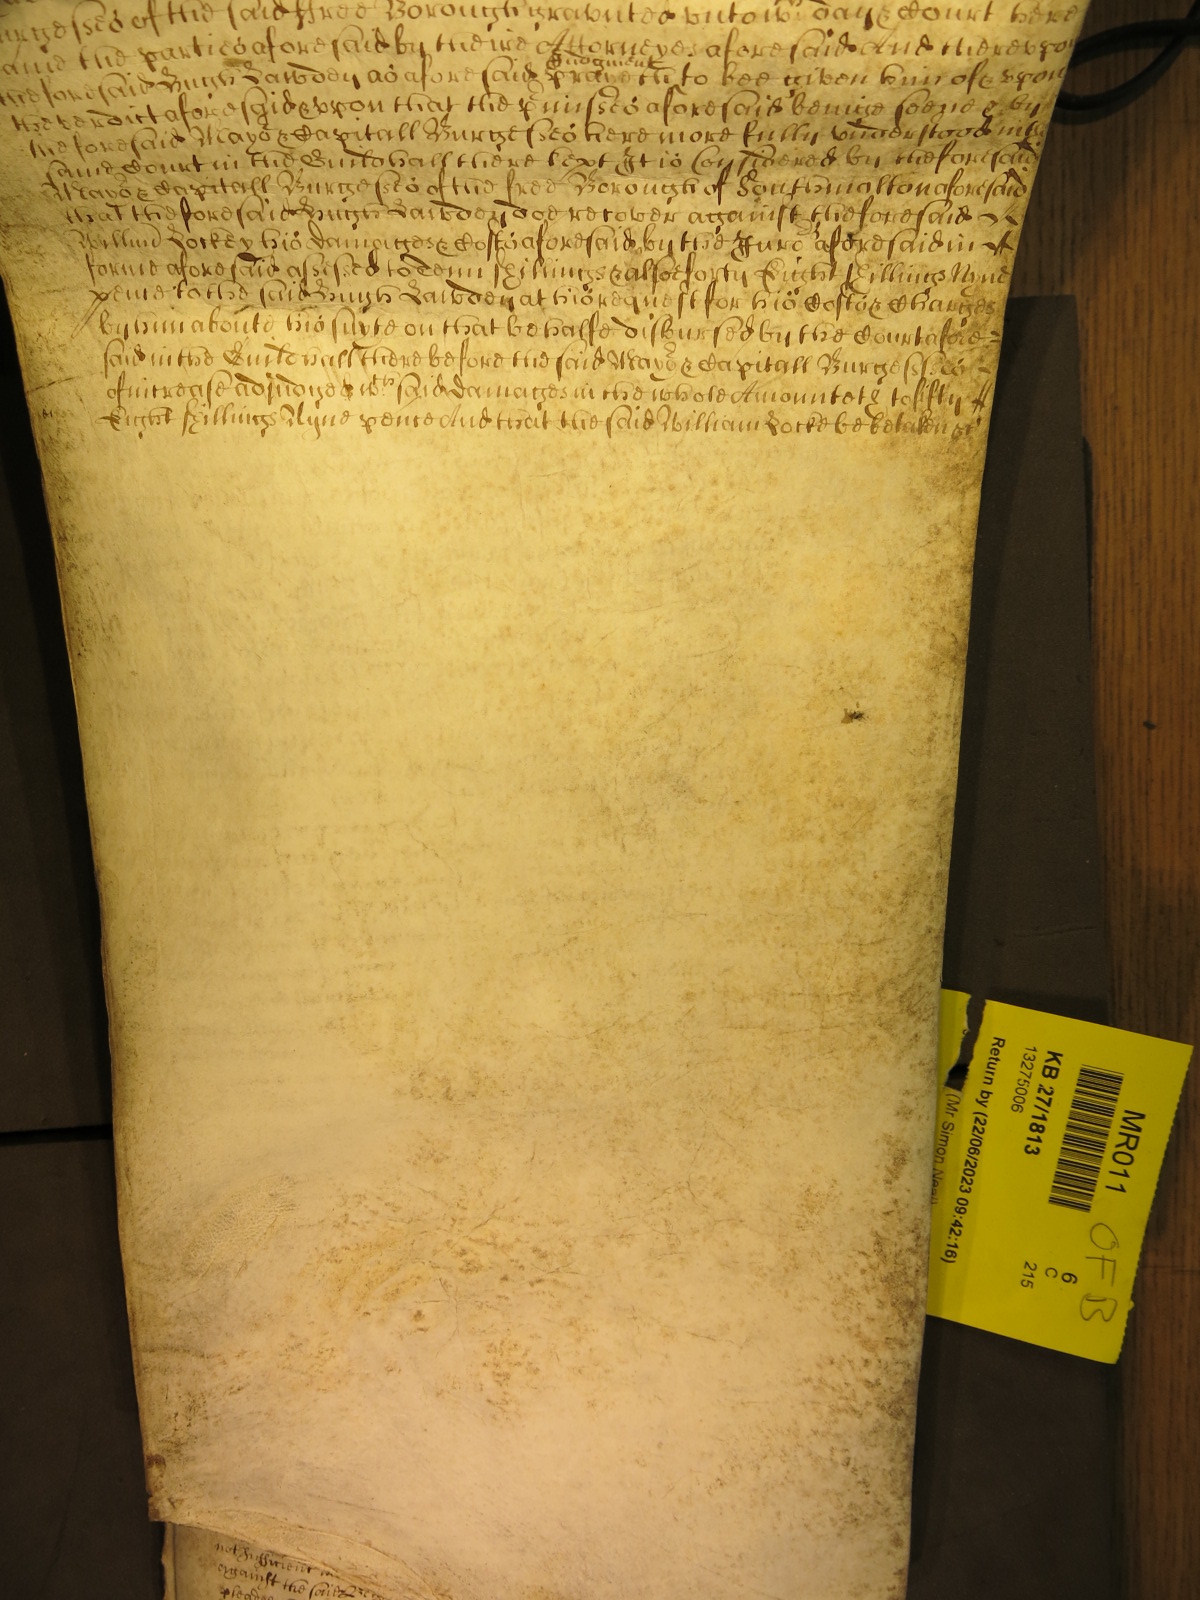 urgesses of the said ffree Borough graunted vnto wch day & Court here
came the parties aforesaid by theire Attorneyes aforesaid And therevpon
Judgment
the foresaid Hugh Lawdey as aforesaid prayeth to bee given him of & vpon
the verdict aforesaid & vpon that the pmisses aforesaid beinge seene & by
the foresaid Mayor & Capitall Burgesses here more fully vnderstood in the
same Court in the Guildhall there kept It is Considered by the foresaid
Mayor & Capitall Burgesses of the free Borough of Southmalton aforesaid
that the foresaid Hugh Lawdey doe recover against the foresaid
William Lockey his damages & Costs aforesaid by the Juro aforesaid in
forme aforesaid assessed to Tenn shillings & alsoe forty Eight shillings Nyne
pence to the said Hugh Lawdey at his request for his Costs & Charges
by him aboute his suyte on that behalfe disbursed by the Court afore=
said in the Guildhall there before the said Mayor & Capitall Burgesses
of increase adjudged wch said damages in the whole Amounteth to fifty
Eight shillings Nyne pence And that the said William Locke be taken &c
not sufficient
against the said
pledges
MR011
KB 27/1813
13275006
Return by (22/06/2023 09:42:16)
(Mr Simon Neal)
6
C
215
OFB